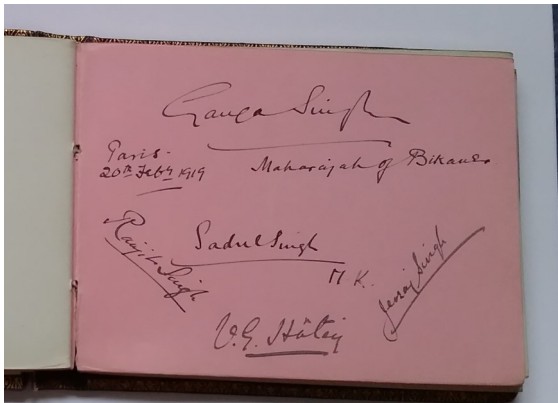 Ganga Singh
Paris.
20th Feby 1919
Maharajah of Bikaner
Sadul Singh
M K.
Singh
Singh
V.G.